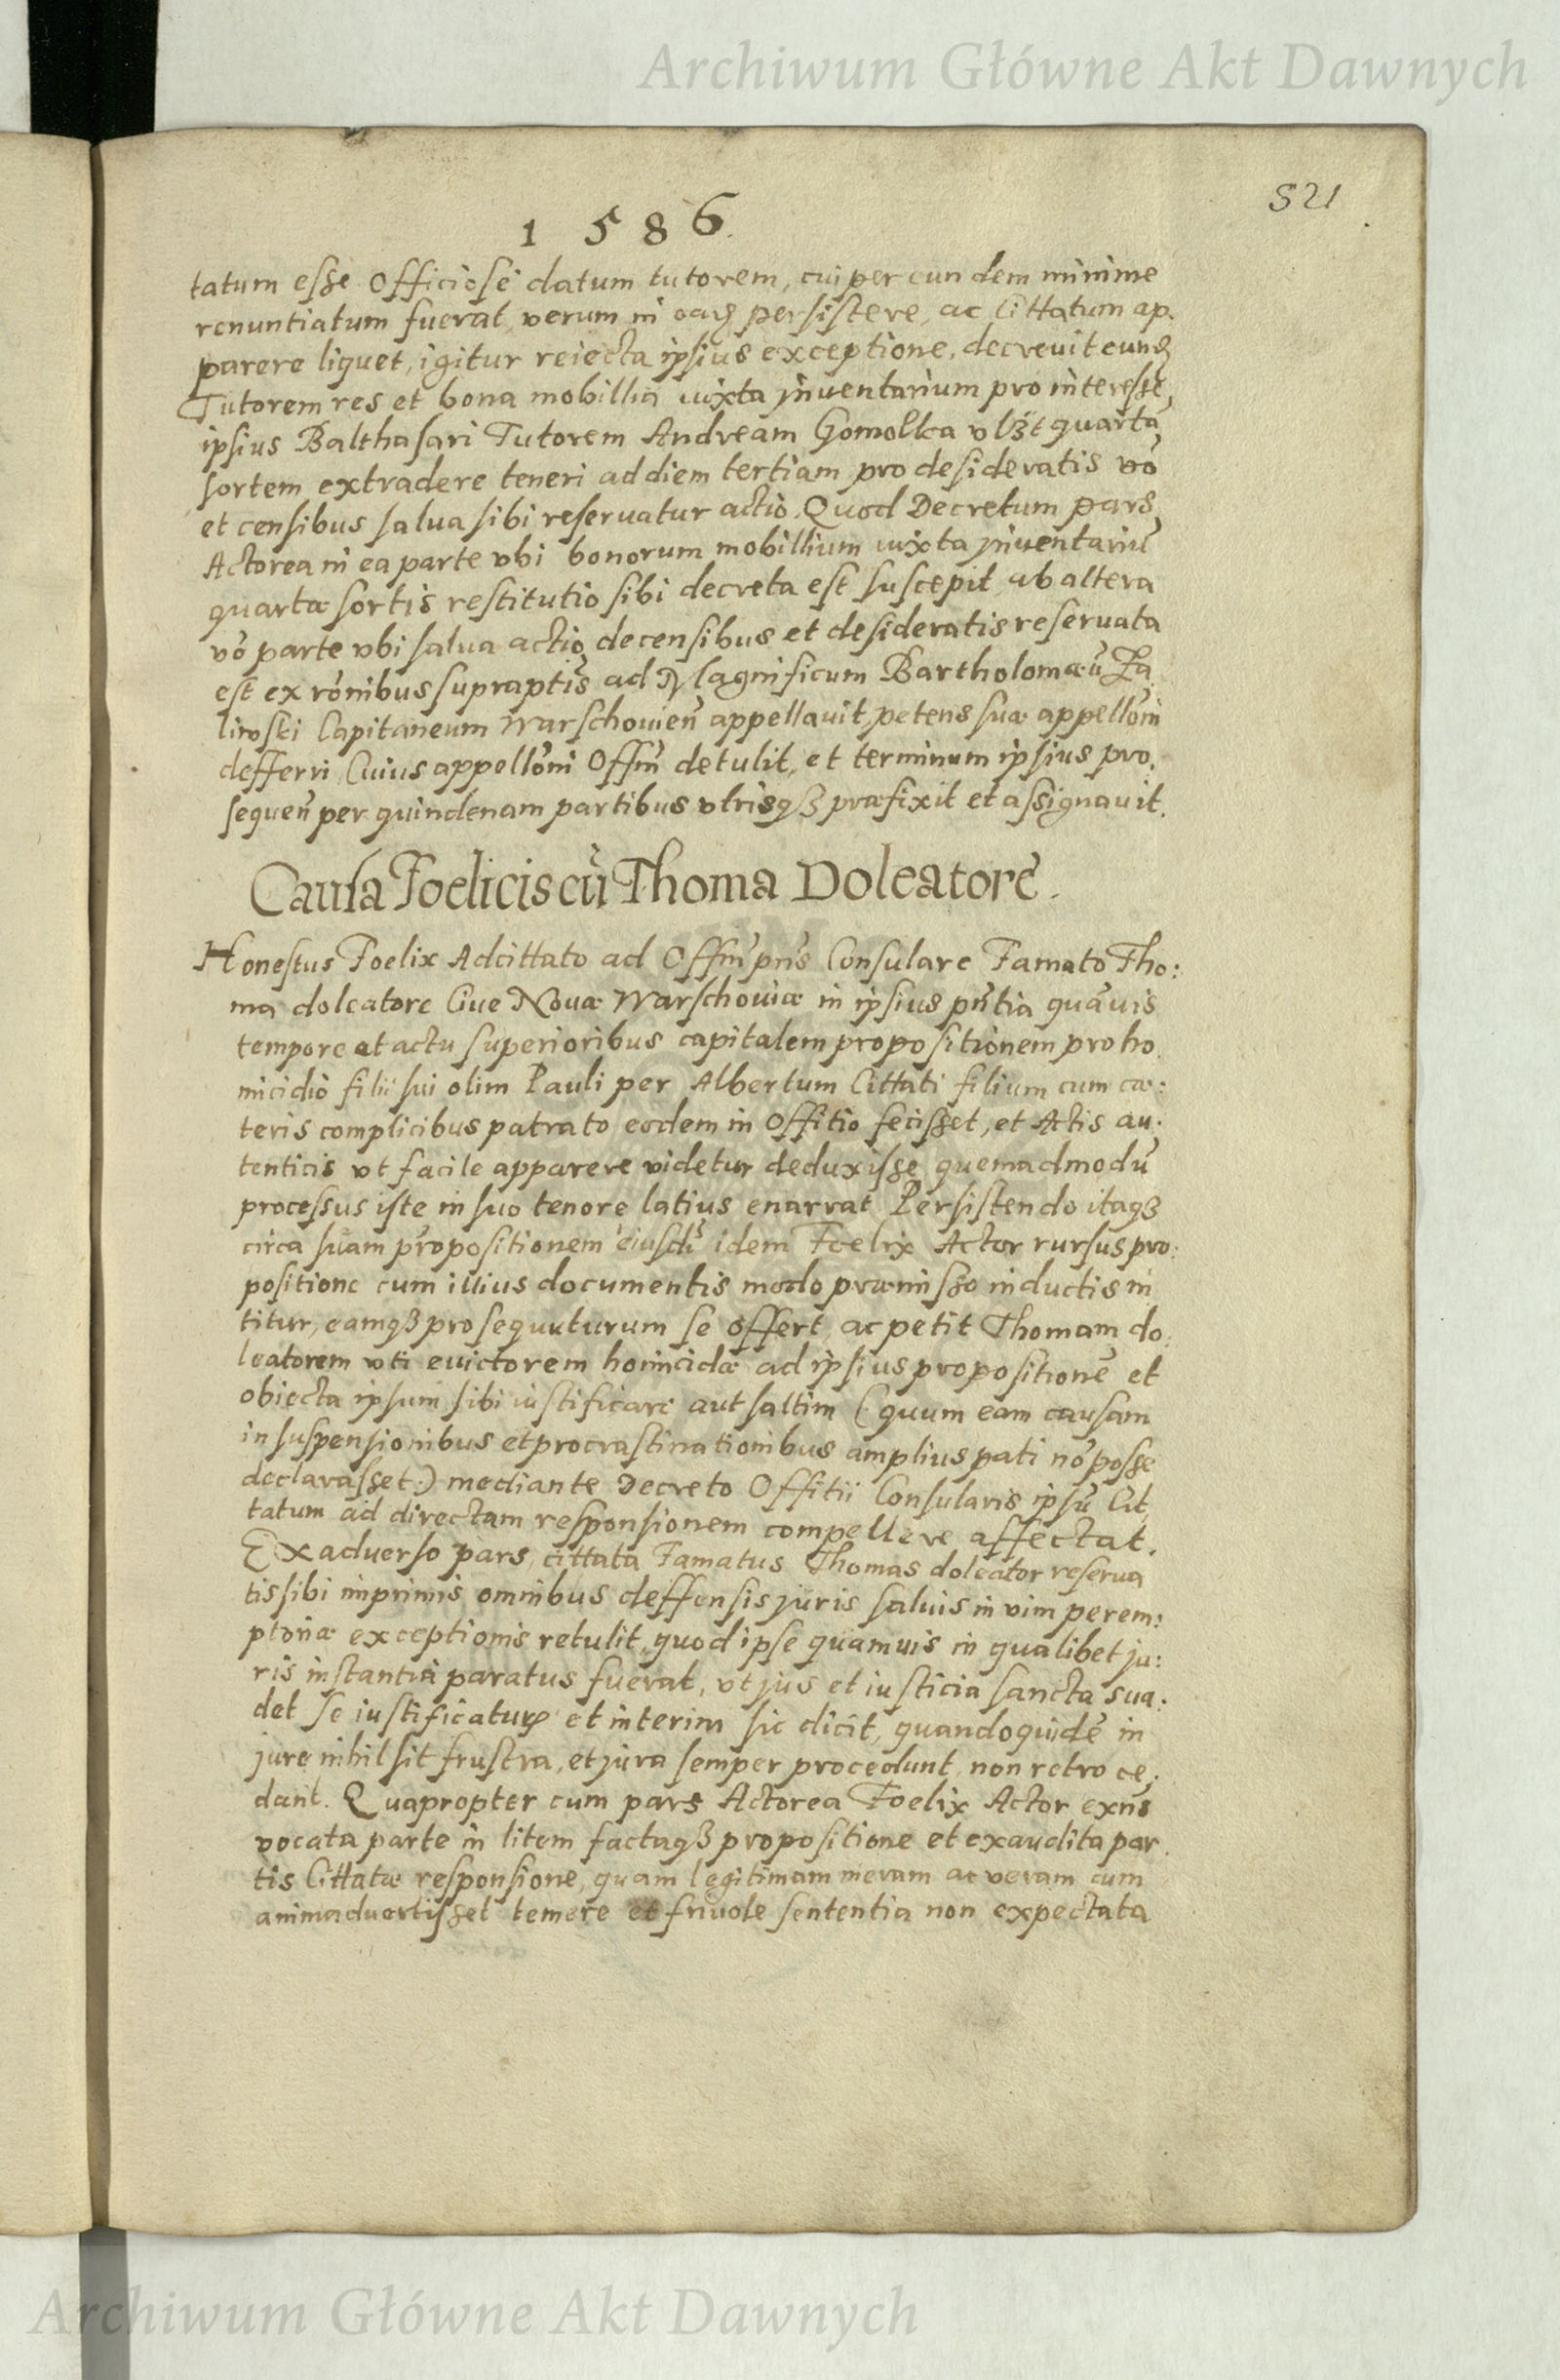 Archiwum Główne Akt Dawnych
521
1586.
tatum esse Officiose datum tutorem, cui per eundem minime
renuntiatum fuerat, verum in persistere, ac Cittatum ap,
parere liquet, igitur reiecta ipsius exceptione, decrevit eund
Tutorem res et bona mobillia iuxta inventarium pro interesse,
ipsius Balthasari Tutorem Andream Gomolka quartā
sortem extradere teneri ad diem tertiam pro desideratis vō
et censibus salva sibi reservatur actio. Quod Decretum pars,
Actorea in ea parte vbi bonorum mobillium iuxta inventariū
quartæ sortis restitutio sibi decreta est suscepit, ab altera
vō parte vbi salua actio de censibus et desideratis reseruata
est ex rōnibus supraptis ad Magnificum Bartholomæū Za
liwski Capitaneum Warschouien̄ appellauit, petens suæ appellōni
defferri, Cuius appellōni Offm̄ detulit, et terminum ipsius pro,
sequen̄ per quindenam partibus vtrisqꝫ præfixit et assignauit.
Causa Foelicis cū Thoma Doleatore.
Honestus Foelix Adcittato ad Offm̄ pn̄s Consulare Famato Tho:
ma doleatore Ciue Nouæ Warschouiæ in ipsius pn̄tia quāuis
tempore et actu superioribus capitalem propositionem pro ho
micidio filii sui olim Pauli per Albertum Cittati filium cum cæ:
teris complicibus patrato eodem in Offitio fecisset, et Actis au:
tenticis vt facile apparere videtur deduxisse quemadmodū
processus iste in suo tenore latius enarrat Persistendo itaqꝫ
circa suam propositionem eiusdē idem Foelix Actor rursus pro:
positione cum illius documentis modo præmisso inductis in
titur, eamqꝫ prosequuturum se offert, ac petit Thomam do:
leatorem vti euictorem homicidæ ad ipsius propositionē et
obiecta ipsum sibi iustificare aut saltim (quum eam causam
in suspensionibus et procrastinationibus amplius pati nō posse
declarasset:) mediante Decreto Offitii Consularis ipsū Cit,
tatum ad directam responsionem compellere affectat.
Ex aduerso pars, cittata Famatus Thomas doleator reserua
tis sibi imprimis omnibus deffensis juris saluis in vim perem:
ptoriæ exceptionis retulit, quod ipse quamuis in qualibet ju:
ris instantia paratus fuerat, vt jus et iusticia sancta sua:
det se iustificaturꝫ et interim sic dicit, quandoquidē in
jure nihil sit frustra, et jura semper procedunt, non retro ce,
dant. Quapropter cum pars Actorea Foelix Actor exn̄s
vocata parte in litem factaqꝫ propositione et exaudita par
tis Cittatæ responsione, quam legitimam meram ac veram cum
animaduertisset temere et friuole sententia non expectata
Archiwum Główne Akt Dawnych